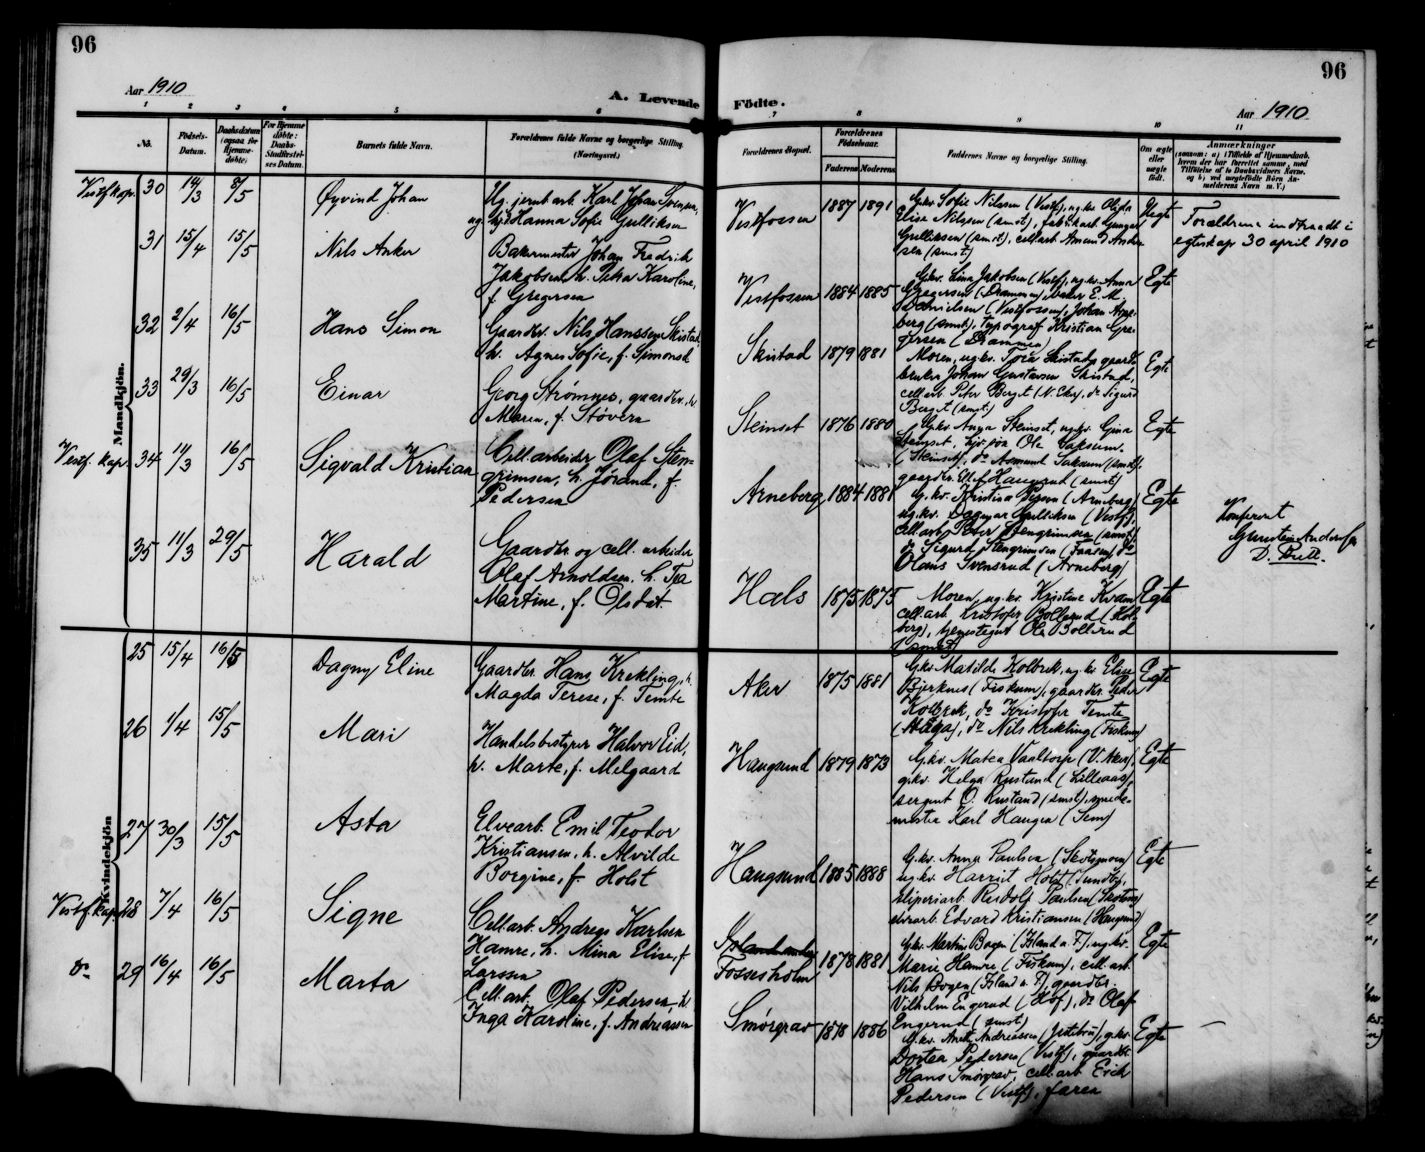 96
96
Aar 1910
A. Levende Födte.
Aar 1910
1 2 3 4 5 6 7 8 9 10 11
No.
Födsels-Datum.
Daabsdatum (ogsaa for Hjemme-döbte)
For Hjemme döbte: Daabs-Stadfæstel-ses Datum.
Barnets fulde Navn.
Forældrenes fulde Navne og borgerlige Stilling (Næringsvei.)
Forældrenes Bopæl.
Forældrenes Födselsaar.
Faderens Moderens
Faddernes Navne og borgerlige Stilling.
Om ægte eller uægte födt.
Anmærkninger
Mandkjön.
Vestf. kap. 30 14/3 8/5 Øyvind Johan
Ug. jernb.arb. Karl Johan Svensen,
og Hanna Sofie Gulliksen
Vestfossen 1887 1891
Gkv. Sofie Nilssen (Vestf), ug.kv.
Elise Nilssen (smst),
Gulliksen (smst), cell.arb. Amund
sen (smst)
Uegte
Forældrene indtraadt i
egteskap 30 april 1910
31 15/4 15/5 Nils Anker
Bakermester Johan Fredrik
Jakobsen, h. Petra Karoline,
f. Gregersen
Vestfossen 1884 1885
Gkv. Lina Jakobsen (Vestf), ug.kv. Anna
Gregersen (Drammen), baker E. M.
Danielsen (Vestfossen), Johan
berg (smst), typograf Kristian Gre-
gersen (Drammen)
Egte
32 2/4 16/5 Hans Simon
Gaardbr. Nils Hanssen Skistad,
h. Agnes Sofie, f. Simonsd
Skistad 1879 1881
Moren, ug.kv. Tora Skistad, gaard-
bruker Johan Gustavsen Skistad,
cell.arb. Peter Berget (N. Eker), do Sigurd
Berget (smst)
Egte
33 29/3 16/5 Einar
Georg Strømnes, gaardbr., h.
Maren, f. Støvern
Stenset 1876 1880
Gkv. Anga Stenset, ug.kv. Gina
Stenset, Ole Saksum
(Stenset), do Aamund Saksum (smst),
gaardbr. Haugerud (smst)
Egte
Vestf. kap. 34 11/3 16/5 Sigvald Kristian
Cell.arbeider Olaf Sten-
grimsen, h. Jørand, f.
Pedersen
Arneberg 1884 1881
G.kv. Kristine (Arneberg)
ug.kv. Dagmar Gulliksen (Vestf),
cell.arb. Peter Stengrimsen (smst),
do Sigurd Stengrimsen (Faasen), do
Hans Svensrud (Arneberg)
Egte
Konferert
D. Brett.
35 11/3 29/5 Harald
Gaardbr. og cell. arbeider
Olaf Arnoldsen, h. Tea
Martine, f. Olsdat.
Hals 1875 1875
Moren, ug.kv. Kristine Kvam
cell.arb. Kristofer Bollerud (Hol-
berg), tjenestegut Ole Bollerud
(smst)
Egte
Kvindekjön
25 15/4 16/5 Dagny Eline
Gaardbr. Hans Krekling, h.
Magda Terese, f. Temte
Aker 1875 1881
G.kv. Matilde Kolbrek, ug.kv. Elise
Bjerknes (Fiskum), gaardbr. Peder
Kolbrek, do Kristofer Temte
(Haga), do Nils Krekling (Fiskum)
Egte
26 1/4 15/5 Mari
Handelsbestyrer Halvor Eid,
h. Marte, f. Melgaard
Haugsund 1879 1873
G.kv. Matea Vaaltorp (V. Aker),
g.kv. Helga Rustand (Lilleaas),
sergent O. Rustand (smst), smede-
mester Karl Haugen (Tem)
Egte
27 30/3 15/5 Asta
Elvearb. Emil Teodor
Kristiansen, h. Alvilde
Borgine, f. Holst
Haugsund 1885 1888
G.kv. Anna Paulsen (Skotsmoen)
ug.kv. Harriet Holst (Sundby),
sliperiarb. Rudolf Paulsen (Skotsm)
elvearb. Edvard Kristiansen (Haugsund)
Egte
Vestf. kap. 28 7/4 16/5 Signe
Cell.arb. Andreas Karlsen
Hamre, h. Mina Elise, f.
Larssen
Fossesholm 1878 1881
Gkv. Martine Bogen (Island u. F.), ug.kv.
Marie Hamre (Fiskum), cell.arb.
Nils Bogen (Island u. F), gaardbr.
Vilhelm Engerud (Hof), do Olaf
Engerud (smst)
Egte
do 29 16/4 16/5 Marta
Cell.arb. Olaf Pedersen, h.
Inga Karoline, f. Andreassen
Smørgrav 1878 1886
G.kv. Anette Andreassen, g.kv.
Dortea Pedersen (Vestf), gaardbr.
Hans Smørgrav, cell.arb. Erik
Pedersen (Vestf), faren
Egte